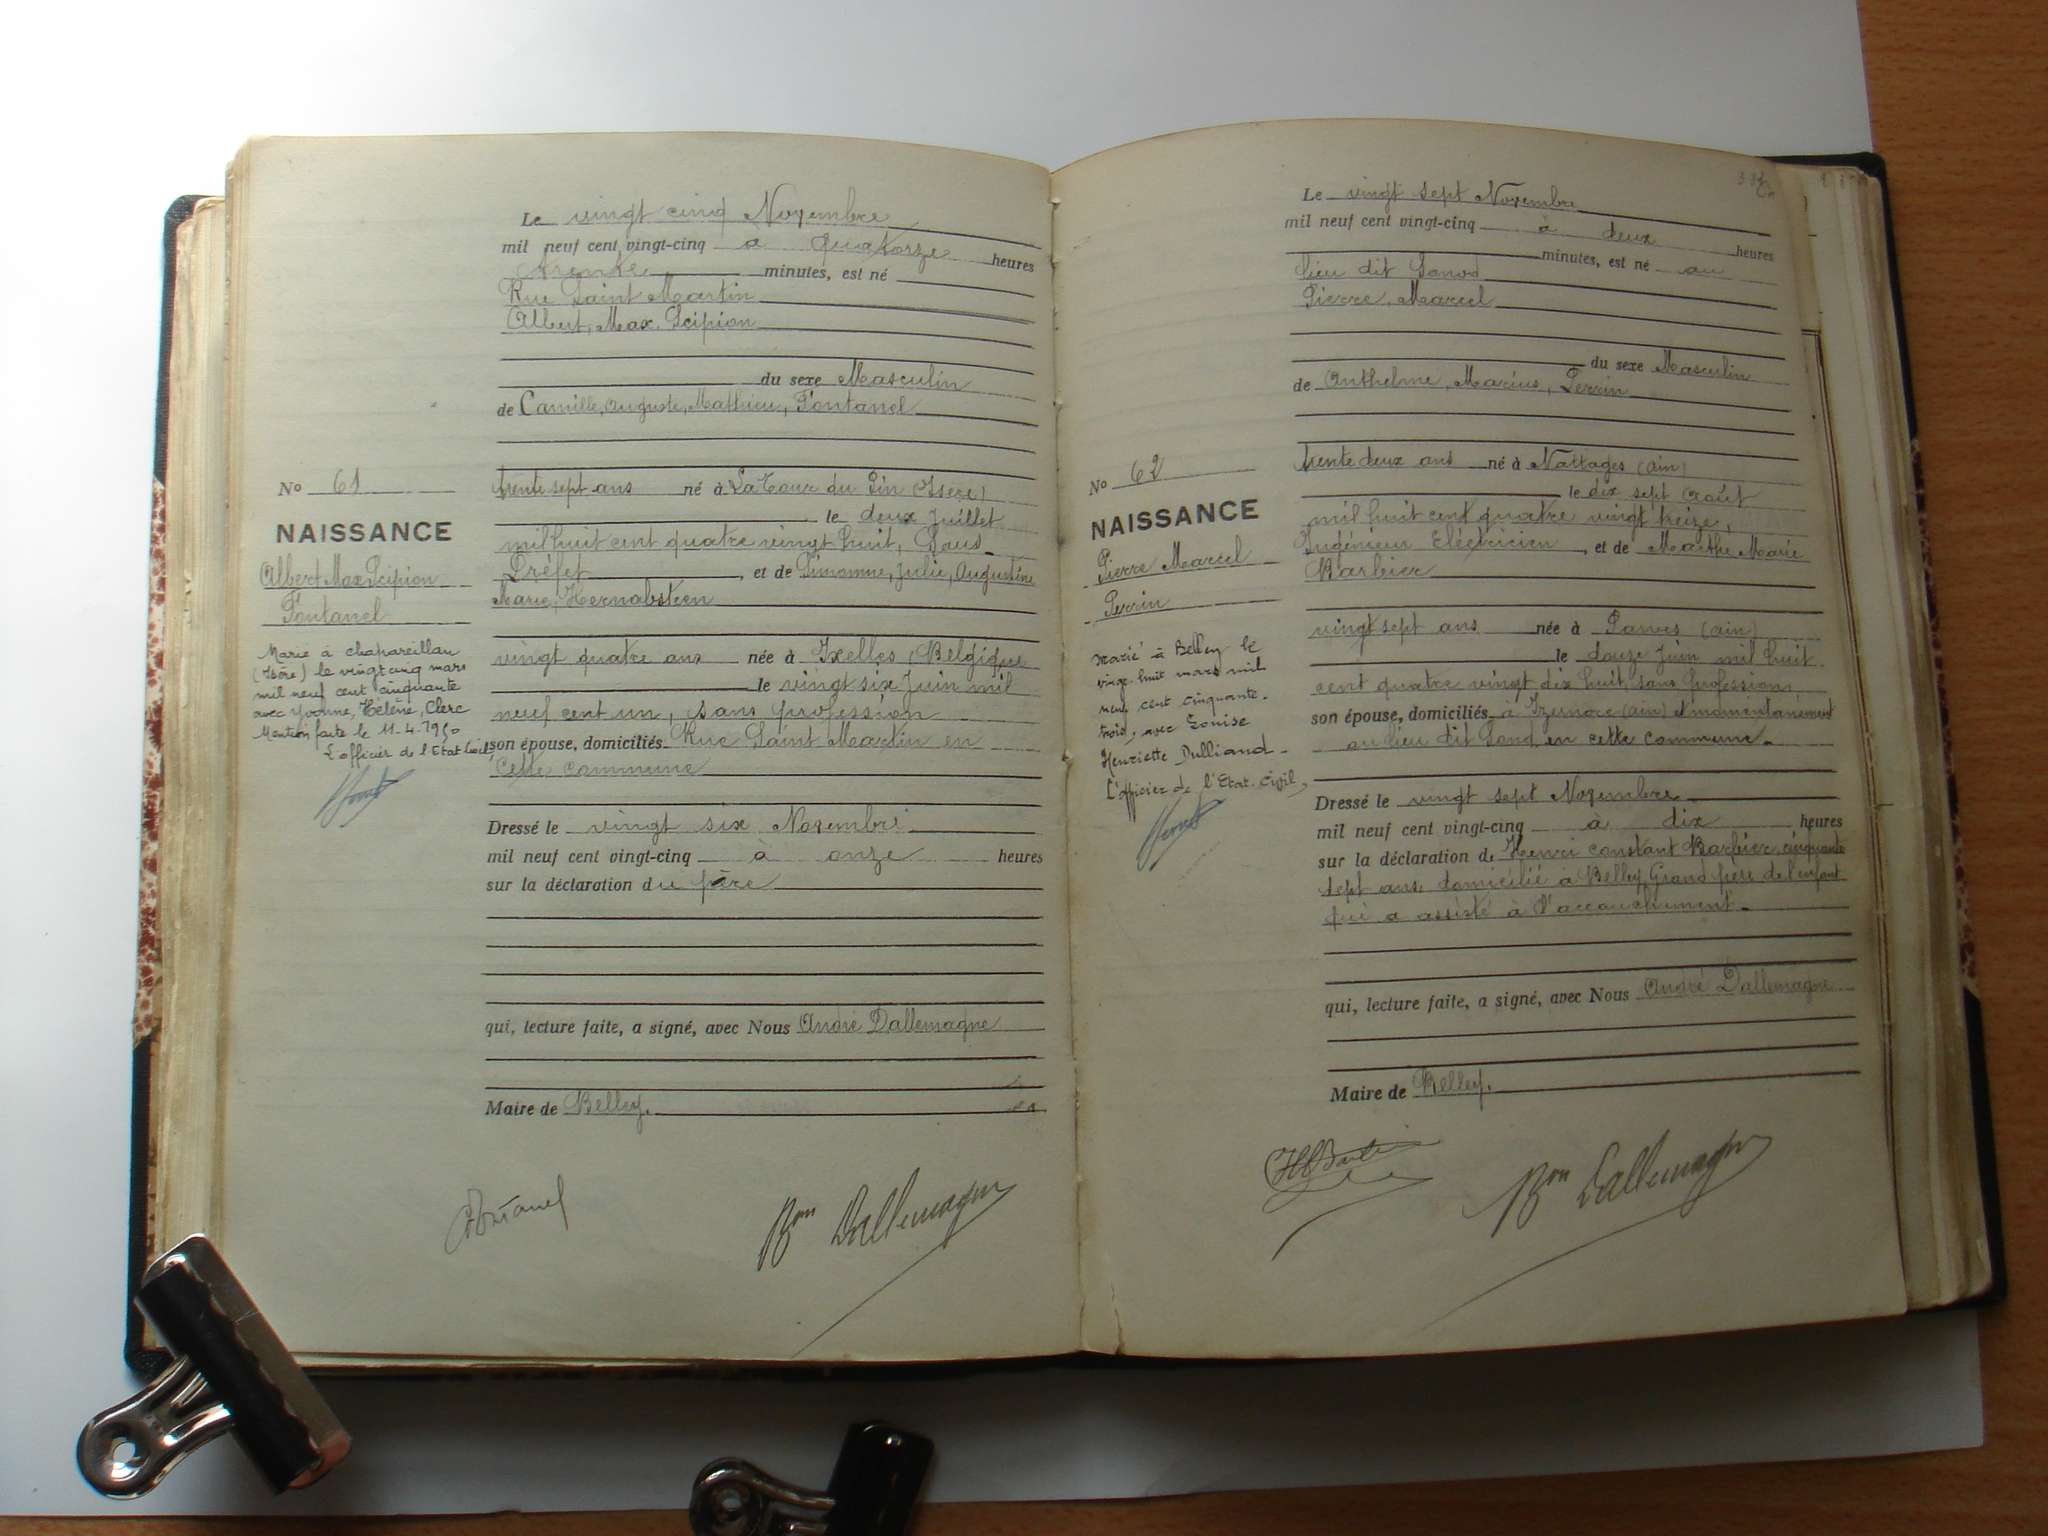 Le vingt cinq Novembre
mil neuf cent vingt-cinq à quatorze heures
trente minutes, est né
Rue Saint Martin
Albert, Max, Scipion
du sexe Masculin
de Camille, Auguste, Mathieu, Fontanel
No 61
NAISSANCE
Albert Max Scipion
Fontanel
Marié à chapareillan
(Isère) le vingt cinq mars
mil neuf cent cinquante
avec Yvonne, Helène, Clerc
Mention faite le 11-4-1950
L'officier de l'Etat Civil,
trente sept ans né à La Tour du Pin (Isère)
le deux Juillet
mil huit cent quatre vingt huit, Sous-
Préfet, et de Simonne, Julie, Augustine
Marie,
vingt quatre ans née à Ixelles, Belgique
le vingt six Juin mil
neuf cent un, sans profession
son épouse, domiciliés Rue Saint Martin en
cette commune
Dressé le vingt six Novembre
mil neuf cent vingt-cinq à onze heures
sur la déclaration du père
qui, lecture faite, a signé, avec Nous André Dallemagne
Maire de Belley.
Fontanel
Bon Dallemagne
Le vingt sept Novembre
mil neuf cent vingt-cinq à deux heures
minutes, est né au
lieu dit
Pierre, Marcel
du sexe Masculin
de Anthelme, Marius, Perrin
No 62
NAISSANCE
Pierre Marcel
Perrin
Marié à Belley le
vingt-huit mars mil
neuf cent cinquante-
trois, avec Louise
Henriette Dulliand-
L'officier de l'Etat-Civil,
trente deux ans né à Nattages (ain)
le dix sept Août
mil huit cent quatre vingt treize,
Ingénieur Eléctricien, et de Marthe Marie
Barbier
vingt sept ans née à (ain)
le douze Juin mil huit
cent quatre vingt dix huit, sans profession,
son épouse, domiciliés à Izernore (ain) et momentanément
au lieu dit en cette commune.
Dressé le vingt sept Novembre
mil neuf cent vingt-cinq à dix heures
sur la déclaration de Henri Constant Barbier, cinquante
sept ans, domicilié à Belley, Grand père de l'enfant
qui a assisté à l'accouchement.
qui, lecture faite, a signé, avec Nous André Dallemagne
Maire de Belley.
Bon Dallemagne